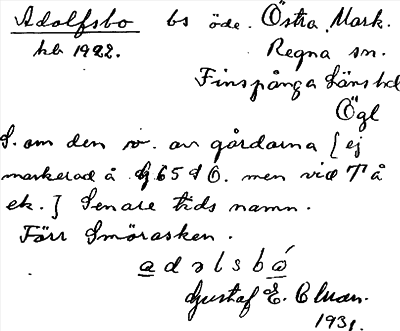 Adolfsbo bs öde. Östra Mark.
hb 1922. Regna sn.
Finspånga Länshd
Ögl
S. om den v. av gårdarna [ej
markerad å Gj 65 d O. men vid T å
ek.] Senare tids namn.
Förr Smörasken.
adɔlsbó
Gustaf E. Cluan.
1931.